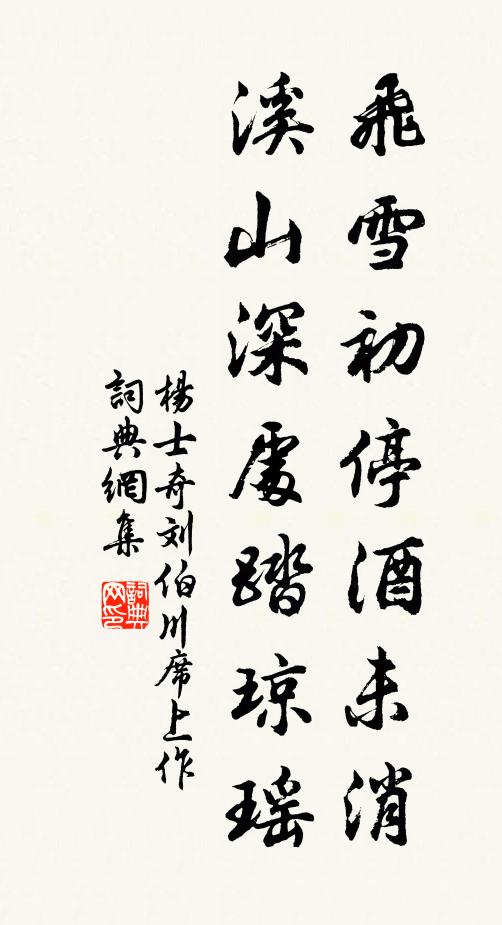 飛雪初停酒未消
溪山深處踏琼瑶
楊士奇刘伯川席上作
詞典網集
詞典网印